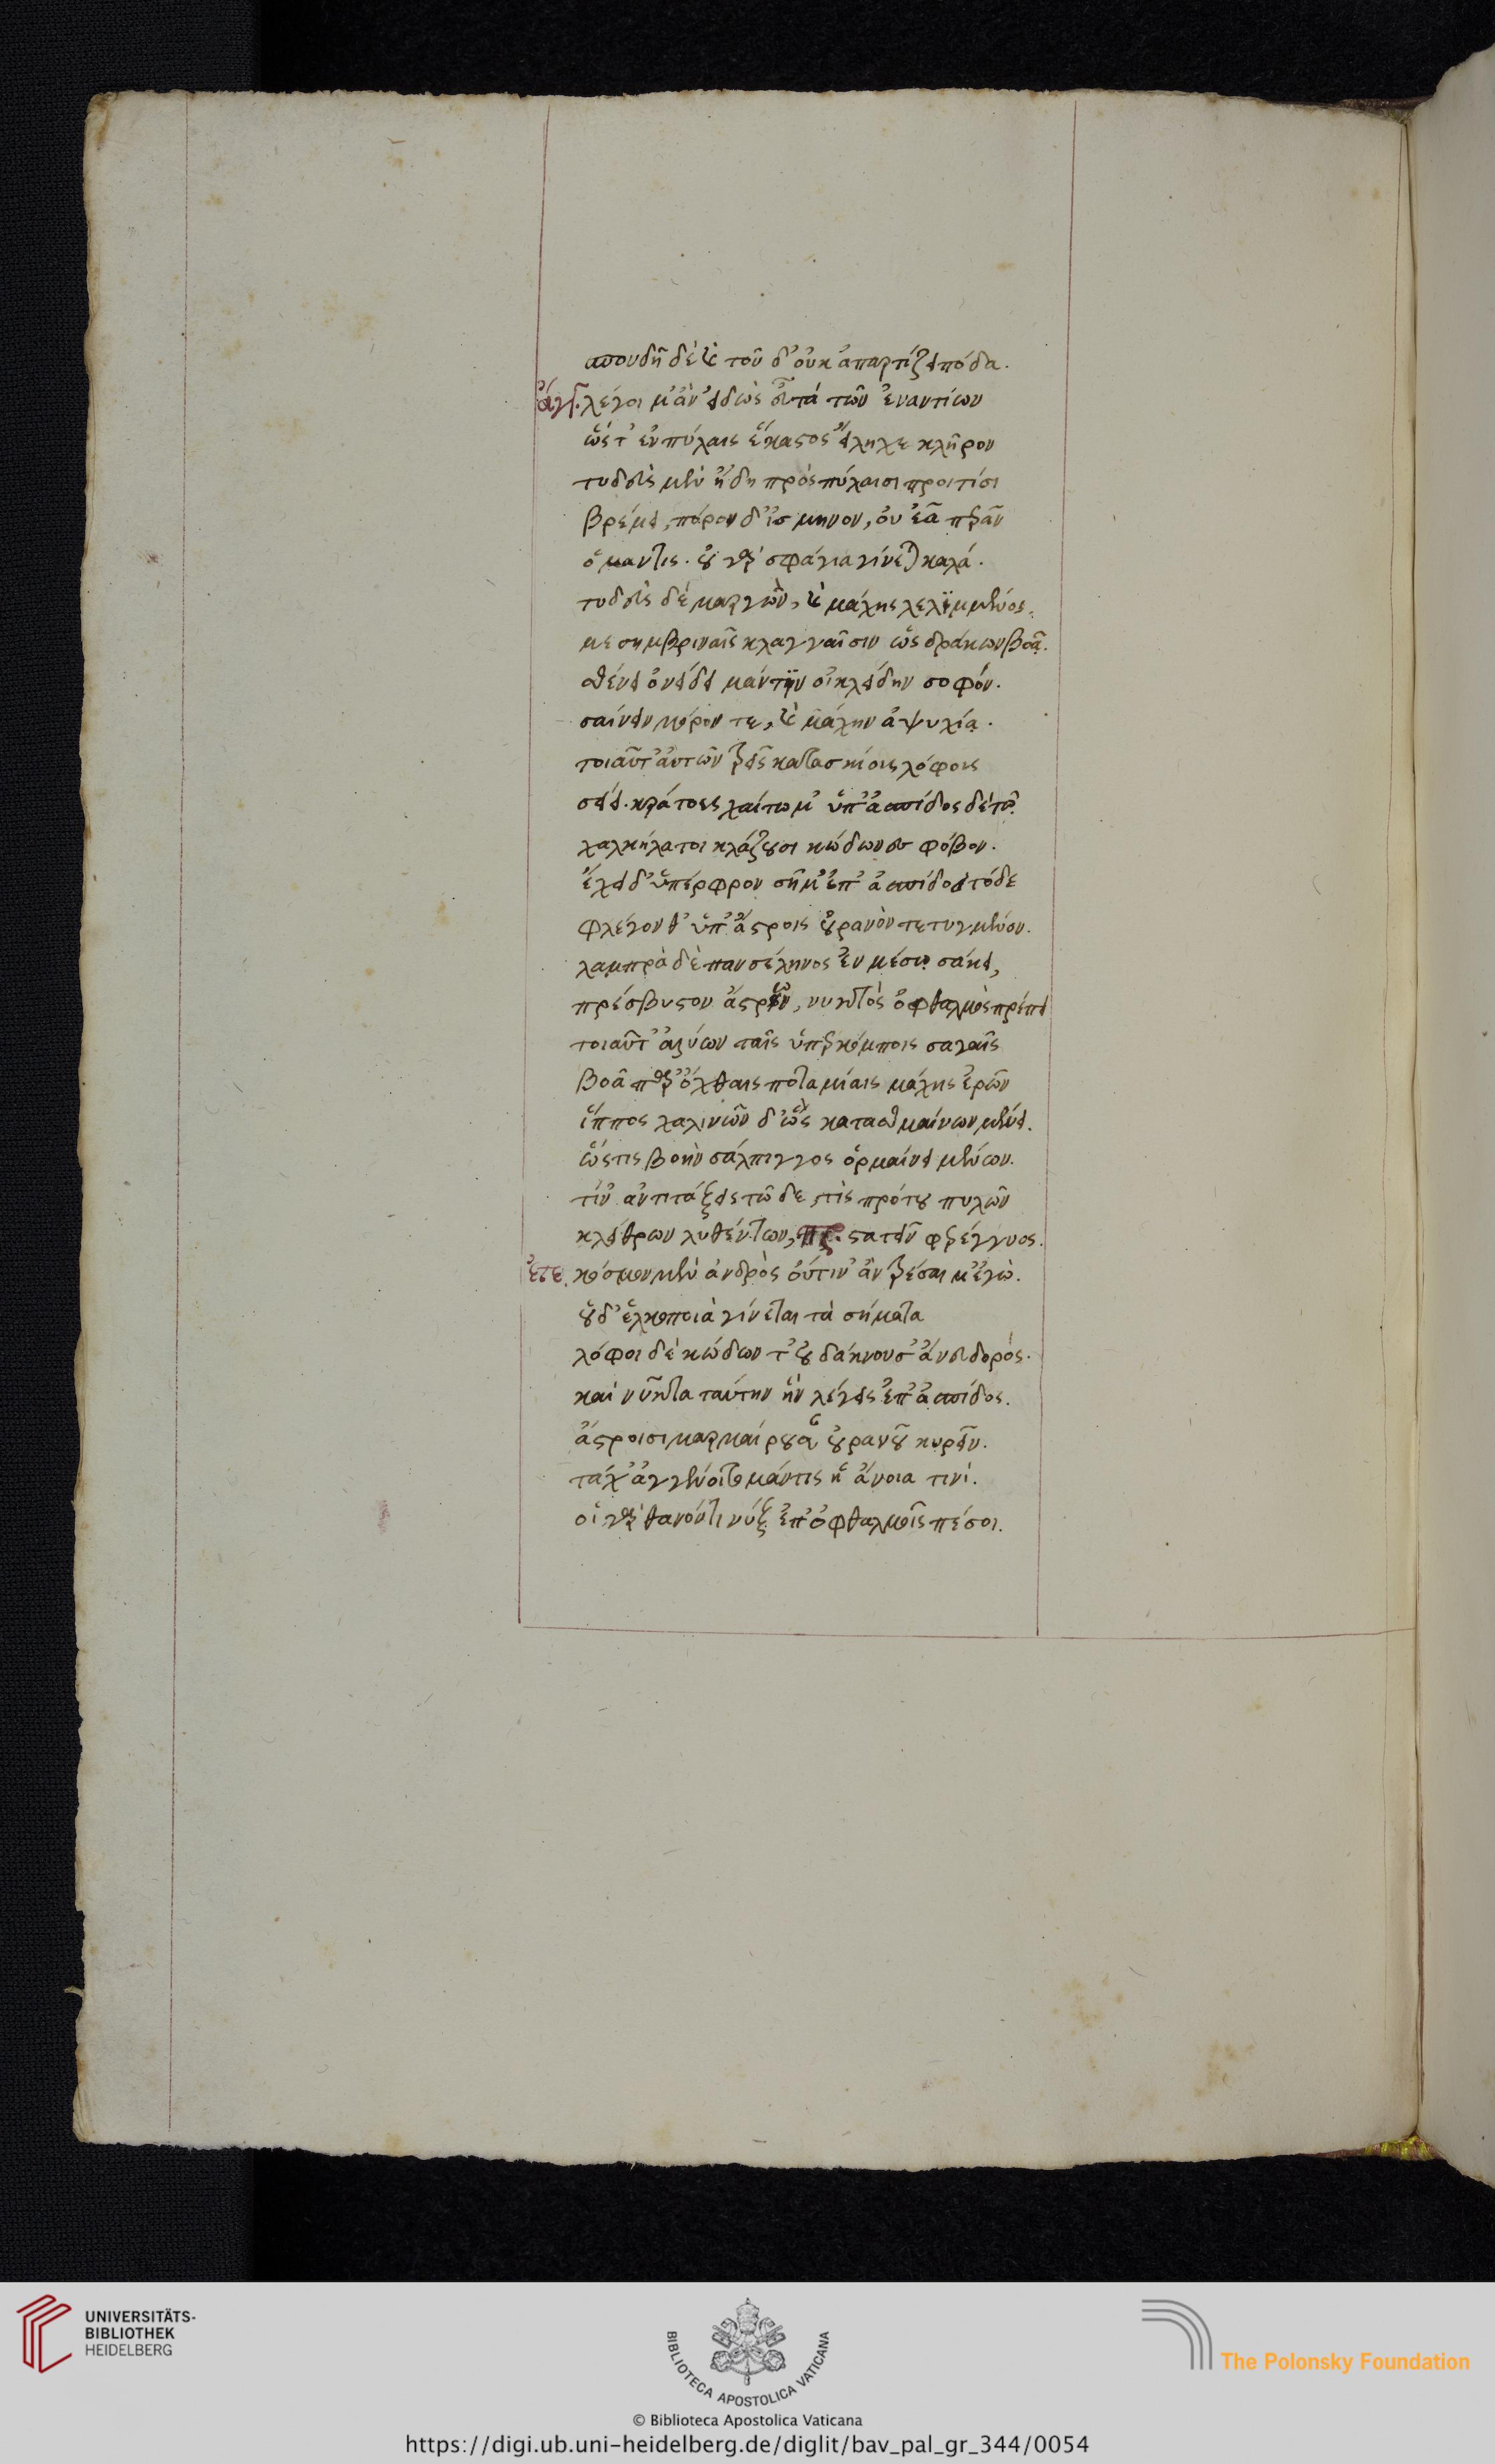 σπουδῆ δὲ καὶ τοῦ δ' οὐκ ἀπαρτίζει πόδα.
ἄγγ. λέγοι μ' ἂν εἰδὼς εὖ τὰ τῶν ἐναντίων
ὥς τ' ἐν πύλαις ἕκαστος εἴληχε κλῆρον
τυδεὺς μὲν ἤδη πρὸς πύλαισι προιτίσι
βρέμει, πόρον δ' ἰσμηνον, οὐ ἐᾶ περᾶν
ὁ μαντις. οὐ γὰρ σφάγια γίνεται καλά.
τυδεὺς δὲ μαργῶν, καὶ μάχης λελϊμμένος.
μεσημβριναῖς κλαγγαῖσιν ὡς δράκων βοᾷ.
θένει ὀνείδει μάντϊν οἰκλείδην σοφόν.
σαίνειν μόρον τε, καὶ μάχην ἀψυχίᾳ.
τοιαῦτ' ἀυτῶν τρεῖς κατασκίοις λόφοις
σείει. κράτους χαίτωμ' ὑπ' ἀσπίδος δὲ τῷ
χαλκήλατοι κλάζουσι κώδωνες φόβον.
ἔχει δ' ὑπέρφρον σῆμ' ἐπ' ἀσπίδος τόδε
φλέγονθ' ὑπ' ἄστροις οὐρανὸν τετυγμένον.
λαμπρὰ δὲ πανσέληνος ἐν μέσῳ σάκει,
πρέσβυστον ἄστρων, νυκτὸς ὀφθαλμὸς πρέπει
τοιαῦτ' ἀλύων ταῖς ὑπερκόμποις σαγαῖς
βοᾶ παρ' ὄχθαις ποταμίαις μάχης ἐρῶν
ἵππος χαλινῶν δ' ὣς κατασθμαίνων μένει.
ὥς τις βοὴν σάλπιγγος ὁρμαίνει μένων.
τίν' ἀντιτάξεις τῶ δε, τὶς πρότου πυλῶν
κλείθρων λυθέντων, προστατεῖν φερέγγυος.
ἐτε. κόσμον μὲν ἀνδρὸς οὔτιν' ἂν τρέσαι μ' ἐγὼ.
οὐδ' ἑλκοποιὰ γίνεται τὰ σήματα
λόφοι δὲ κώδων τ' οὐ δάκνουσ' ἄνευ δορός.
καὶ νύκτα ταύτην ἣν λέγεις ἐπ' ἀσπίδος.
ἄστροισι μαρμαίρουσαν οὐρανοῦ κυρεῖν.
τάχ' ἂν γένοιτο μάντις ἡ ἄνοια τινί.
οἱ γὰρ θανόντι νύξ ἐπ' ὀφθαλμοῖς πέσοι.
UNIVERSITÄTS-
BIBLIOTHEK
HEIDELBERG
BIBLIOTECA APOSTOLICA VATICANA
The Polonsky Foundation
© Biblioteca Apostolica Vaticana
https://digi.ub.uni-heidelberg.de/diglit/bav_pal_gr_344/0054